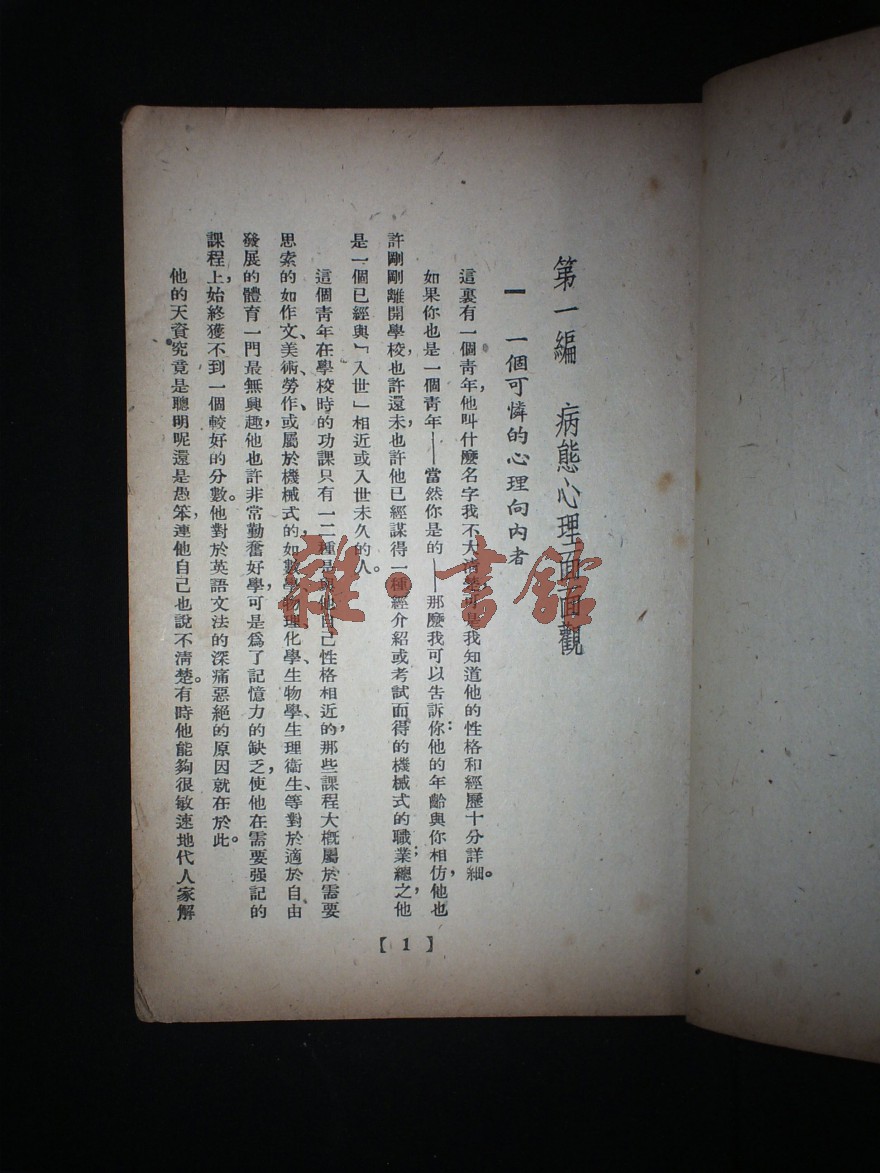 第一編　病態心理面面觀
一　一個可憐的心理向內者
這裏有一個青年，他叫什麼名字我不大清楚可是我知道他的性格和經歷十分詳細。
如果你也是一個青年——當然你是的——那麼我可以告訴你：他的年齡與你相仿，他也
許剛剛離開學校，也許還未，也許他已經謀得一種經介紹或考試而得的機械式的職業；總之，他
是一個已經與「入世」相近或入世未久的人。
這個青年在學校時的功課只有一二種是與他自己性格相近的，那些課程大概屬於需要
思索的如作文、美術、勞作、或屬於機械式的，如數學、物理、化學、生物學、生理衞生、等對於適於自由
發展的體育一門最無興趣，他也許非常勤奮好學，可是爲了記憶力的缺乏，使他在需要强記的
課程上，始終獲不到一個較好的分數。他對於英語文法的深痛惡絕的原因就在於此。
他的天資究竟是聰明呢還是愚笨，連他自己也說不清楚。有時他能夠很敏速地代人家解
【1】
雜·書館